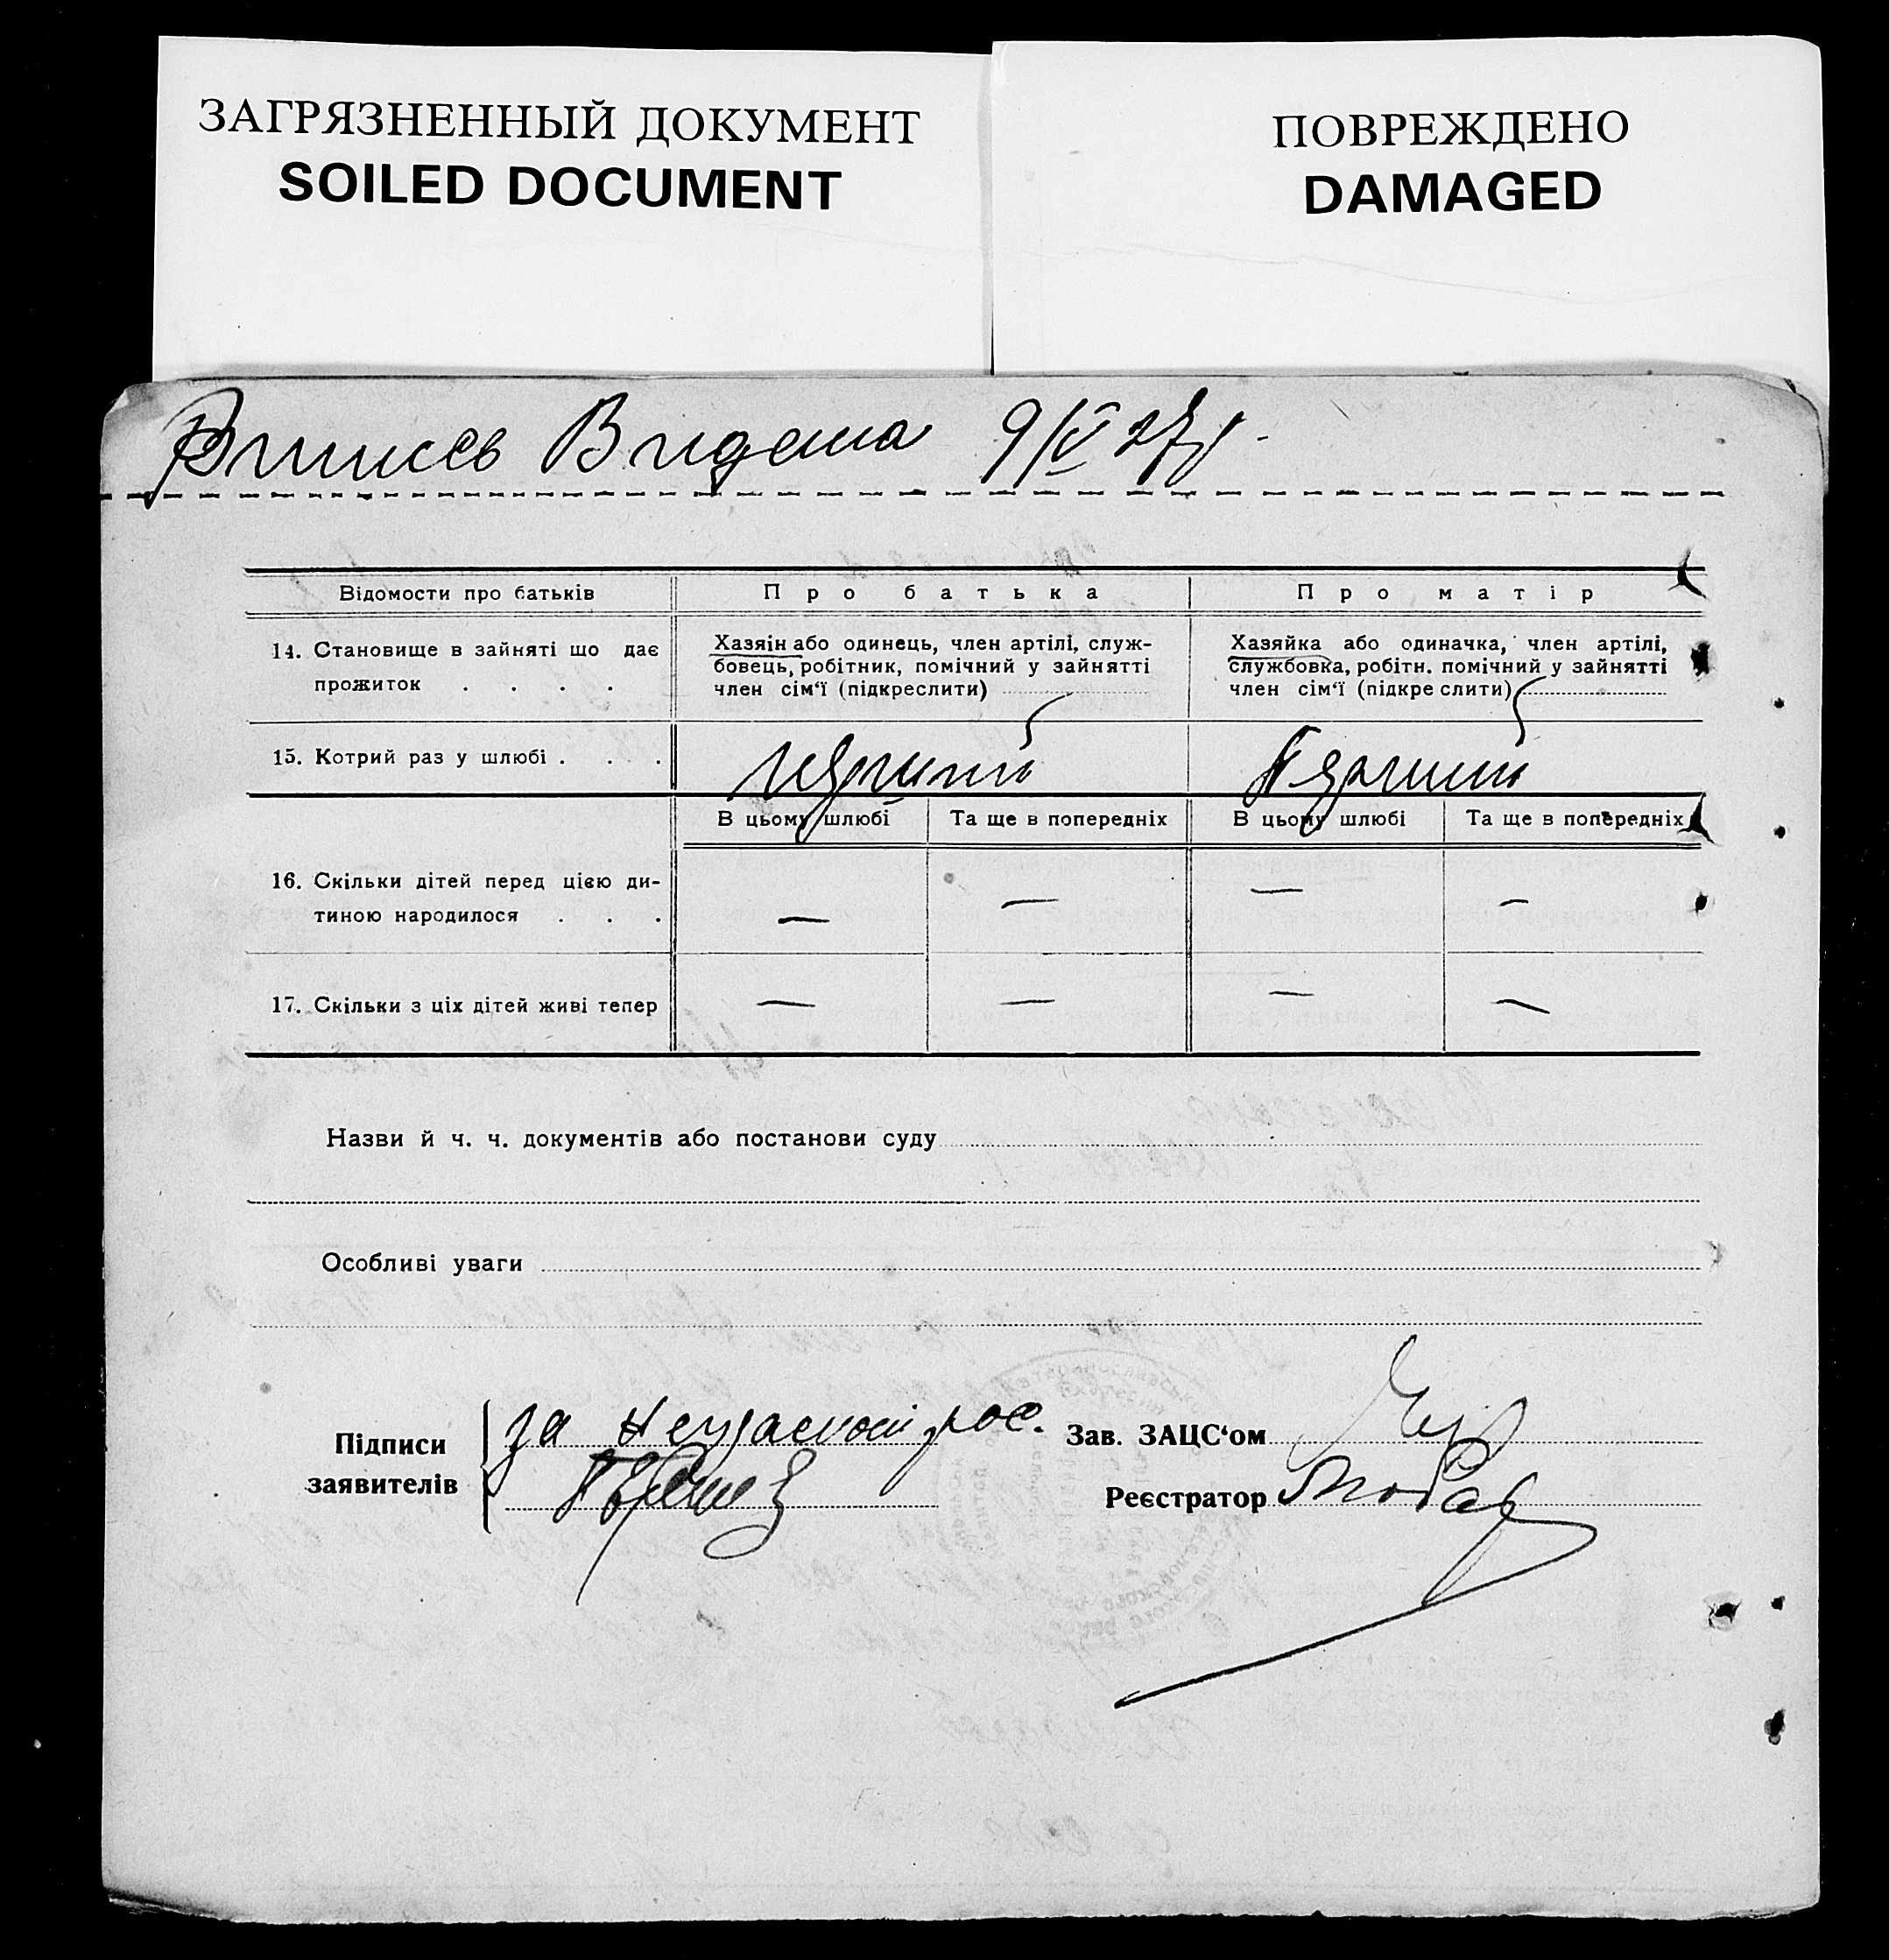 ЗАГРЯЗНЕННЫЙ ДОКУМЕНТ
SOILED DOCUMENT
ПОВРЕЖДЕНО
DAMAGED
Випись Видана 9/V 27 р.
Відомости про батьків
Про батька
Про матір
14. Становище в зайняті що дає
прожиток . . . .
Хазяін або одинець, член артілі, служ-
бовець, робітник, помічний у зайнятті
член сім‘ї (підкреслити)
Хазяйка або одиначка, член артілі,
службовка, робітн. помічний у зайнятті
член сім‘ї (підкре слити)
15. Котрий раз у шлюбі . . .
перший
перший
В цьому шлюбі
Та ще в попередніх
В цьому шлюбі
Та ще в попередніх
16. Скільки дітей перед цією ди-
тиною народилося . . .
— — — —
17. Скільки з ціх дітей живі тепер
— — — —
Назви й ч. ч. документів або постанови суду
Особливі уваги
Підписи
заявителів
за рос.
Зав. ЗАЦС‘ом
Реєстратор